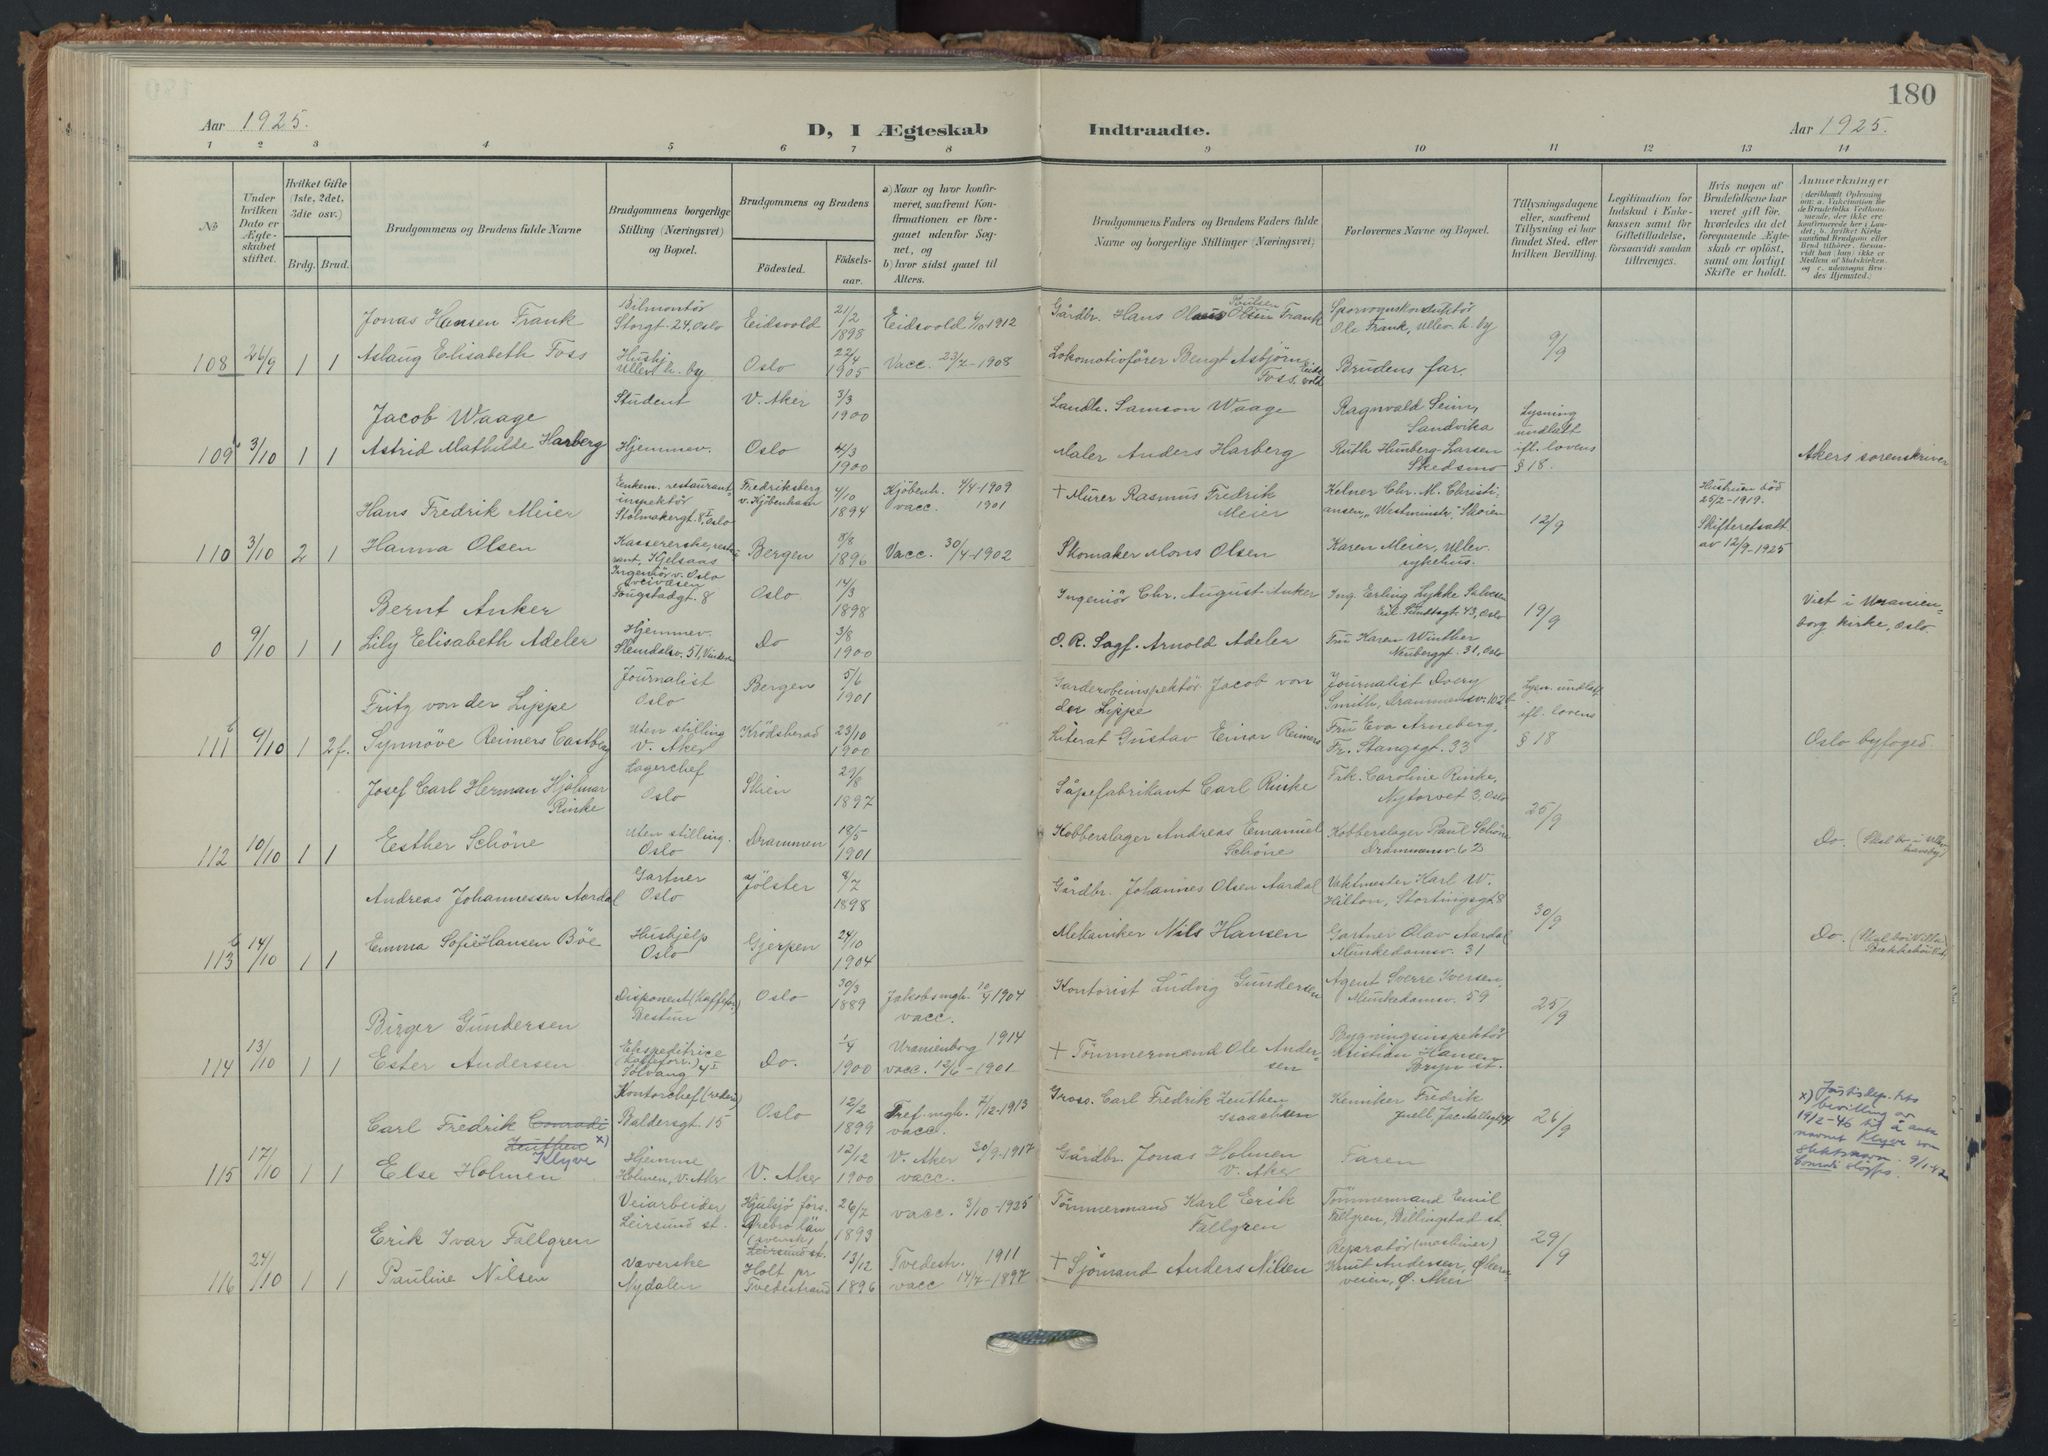 180
Aar 1925.
D, I Ægteskab Indtraadte.
Aar 1925.
1 2 3 4 5 6 7 8 9 10 11 12 13 14
No
Under hvilken Dato er Ægteskabet stiftet.
Hvilket Gifte (1ste, 2det, 3die osv.)
Brdg. Brud.
Brudgommens og Brudens fulde Navne
Brudgommens borgerlige Stilling (Næringsvei) og Bopæl.
Brudgommens og Brudens
Födested. Födsels-aar.
a) Naar og hvor konfirmeret, saafremt Konfirmationen er foregaaet udenfor Sognet, og
b) hvor sidst gaaet til Alters.
Brudgommens Faders og Brudens Faders fulde Navne og borgerlige Stillinger (Næringsvei).
Forlovernes Navne og Bopæl.
Tillysningsdagene eller, saafremt Tillysning ei har fundet Sted, efter hvilken Bevilling.
Legitimation for Indskud i Enkekassen samt for Giftetilladelse, forsaavidt saadan tiltrænges.
Hvis nogen af Brudefolkene har været gift för, hvorledes da det foregaaende Ægteskab er oplöst, samt om lovligt Skifte er holdt.
Anmærkninger
Jonas Hansen Frank Bilmontör Storgt. 24, Oslo Eidsvold 21/2 1898 Eidsvold 6/10-1912 Gårdbr. Hans Poulsen Frank Sporvognskonduktör Ole Frank, Ullev. h. by 9/9
108 26/9 1 1 Aslaug Elisabeth Foss Husbj. Ullev. h. by Oslo 22/4 1905 Vacc. 23/7-1908 Lokomotivförer Bengt Asbjörn Foss, Eidsvold Brudens far.
Jacob Waage Student V. Aker 3/3 1900 Landh. Samson Waage Ragnvald Seim, Sandvika Lysning undlatt ifl. lovens § 18.
109 3/10 1 1 Astrid Mathilde Harberg Hjemmev. Oslo 4/3 1900 Maler Anders Harberg Ruth Hunberg-Larsen Skedsmo Akers sorenskriver
Hans Fredrik Meier Enkem. restaurant-inspektör Stolmakergt. 8, Oslo Fredriksberg v. Kjöbenhavn 4/10 1894 Kjöbenh. 4/4-1909 vacc. 1901 + Murer Rasmus Fredrik Meier Kelner Chr. M. Christiansen, "Westminster", Skoien 12/9 Hustruen död 25/2-1919. Skifteretsatt. av 12/9-1925
110 3/10 2 1 Hanna Olsen Kassererske, restaurant, Kjelsaas Bergen 3/8 1896 Vacc. 30/4-1902 Skomaker Mons Olsen Karen Meier, Ullev. sykehus.
Bernt Anker Ingeniör v. Oslo veivæsen Fougstadgt. 8 Oslo 14/3 1898 Ingeniör Chr. August Anker Ing. Erling Lykke Salvesen Eil. Sundtsgt. 43, Oslo 19/9 Viet i Uranienborg kirke, Oslo.
0 9/10 1 1 Lily Elisabeth Adeler Hjemmev. Slemdalsv. 51, Vinderen Do 3/8 1900 O. R. Sagf. Arnold Adeler Fru Karen Winther Neuberggt. 31, Oslo
Fritz von der Lippe Journalist Oslo Bergen 5/6 1901 Garderobeinspektör Jacob von der Lippe Journalist Dvery Smith, Drammensv. 102 Lysn. undlatt ifl. lovens § 18
111 9/10 1 2 f. Synnöve Reimers Castberg Uten stilling V. Aker Krödsherad 23/10 1900 Literat Gustav Einar Reimers Fru Eva Arneberg, Fr. Stangsgt. 33 Oslo byfoged
Josef Carl Herman Hjalmar Rinke Lagerchef Oslo Skien 29/8 1897 Såpefabrikant Carl Rinke Frk. Caroline Rinke, Nytorvet 3, Oslo 25/9
112 10/10 1 1 Esther Schöne Uten stilling. Oslo Drammen 18/5 1901 Kobberslager Andreas Emanuel Schöne Kobberslager Paul Schöne Drammensv. 62 Do. (Skal bo i Ullev. haveby)
Andreas Johannessen Aardal Gartner Oslo Jölster 8/7 1898 Gårdbr. Johannes Olsen Aardal Vaktmester Karl W. Hilton, Stortingsgt 8 30/9
113 14/10 1 1 Emma Sofie Hansen Böe Hushjelp Oslo Gjerpen 24/10 1904 Mekaniker Nils Hansen Gartner Olav Aardal Munkedamsv. 31 Do.
Birger Gundersen Disponent (Kaffeforr.) Bestun Oslo 30/3 1889 Jakobs mgh. 10/4 1904 vacc. Kontorist Ludvig Gundersen Agent Sverre Iversen, Munkedamsv. 59 25/9
114 13/10 1 1 Ester Andersen Ekspeditrice (kaffeforr.) Solvang 4 I Do. 1/4 1900 Uranienborg 1914 vacc. 12/6-1901 + Tömmermand Ole Andersen Bygningsinspektör Kristian Hansen Bryn st.
Carl Fredrik Conradi Zeuthen x) Klyve Kontorchef (rederi) Baldersgt. 15 Oslo 12/2 1899 Tref. mgh. 7/12-1913 vacc. Gross. Carl Fredrik Zeuthen Isaachsen Kemiker Fredrik Juell, Jac Aallsgt 14 26/9 x) Justisdep.tets bevilling av 19/2-46 til å anta navnet Klyve som slektsnavn. 9/1-47 Conradi sløifes.
115 17/10 1 1 Else Holmen Hjemme Holmen, V. Aker V. Aker 12/12 1900 V. Aker 30/9-1917 vacc. Gårdbr. Jonas Holmen V. Aker Faren
Erik Ivar Fallgren Veiarbeider Leirsund st. Hjulsjö förs. Örebro län (svensk) Leirsund st. 26/2 1893 vacc. 3/10-1925 Tömmermand Karl Erik Fallgren Tömmermand Emil Fallgren, Billingstad st. 29/9
116 24/10 1 1 Pauline Nilsen Væverske Nydalen Holt pr Tvedestrand 13/12 1896 Tvedestr. 1911 vacc 14/7-1897 + Sjömand Anders Nilsen Reparatör (maskiner) Knut Andersen, Økernveien, Ø. Aker